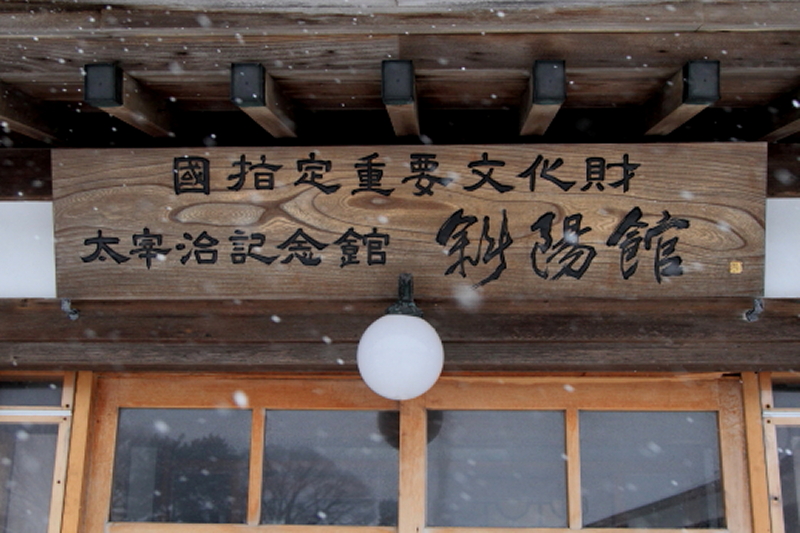 國指定重要文化財
太宰治記念館 斜陽館